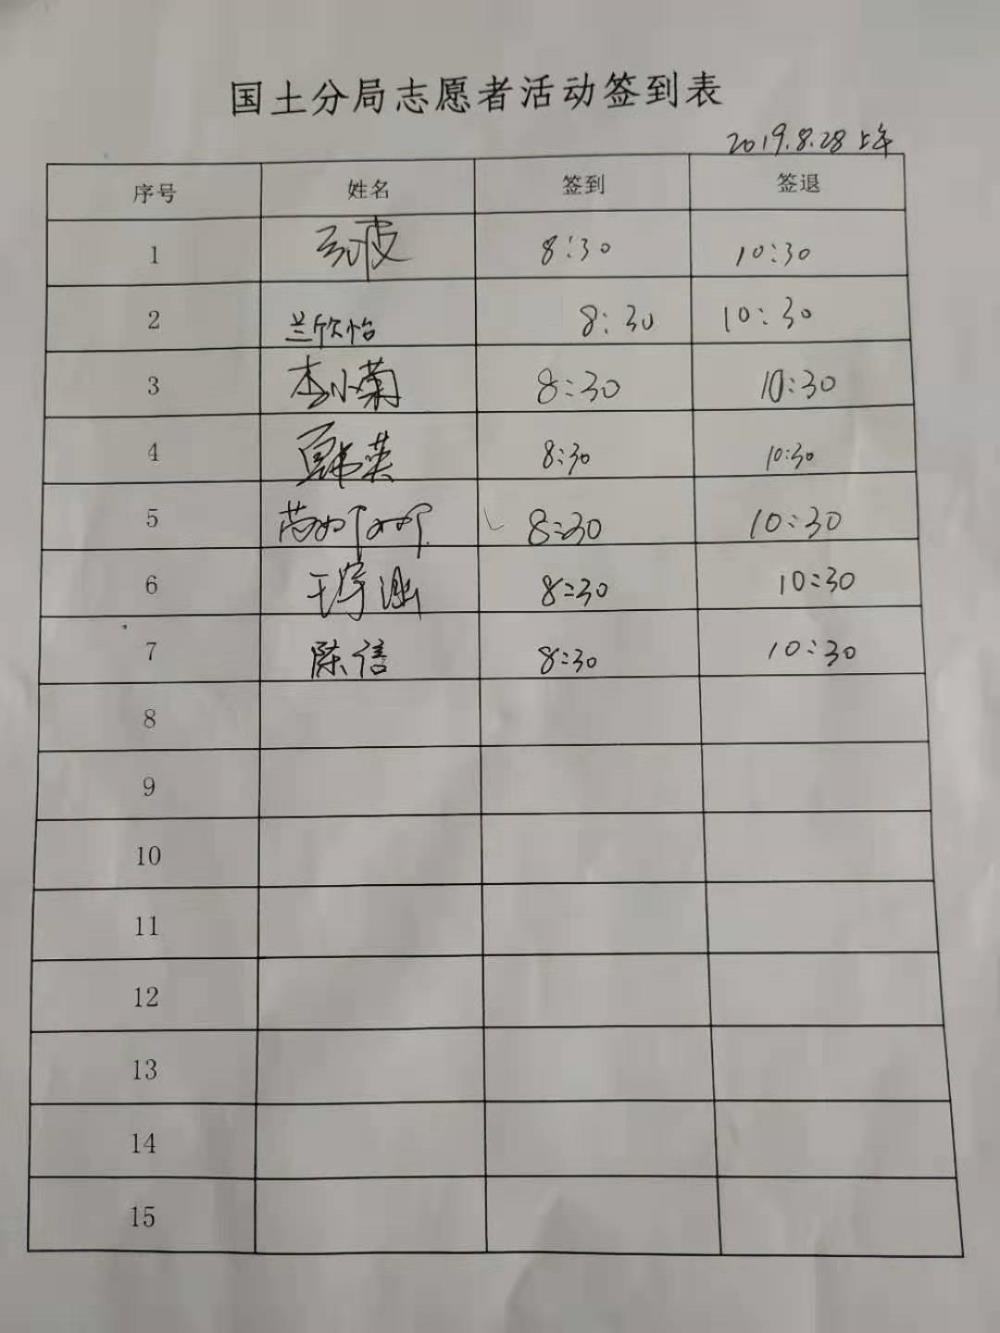 国土分局志愿者活动签到表
2019.8.28 上午
序号 姓名 签到 签退
1 8:30 10:30
2 兰欣怡 8:30 10:30
3 李小菊 8:30 10:30
4 英 8:30 10:30
5 8:30 10:30
6 王宇涵 8:30 10:30
7 陈信 8:30 10:30
8
9
10
11
12
13
14
15